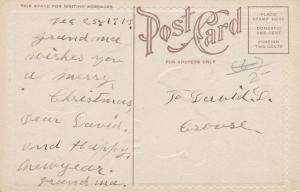 THIS SPACE FOR WRITING MESSAGES
Post Card
PLACE
STAMP HERE
DOMESTIC
ONE CENT
FOREIGN
TWO CENTS
FOR ADDRESS ONLY
Dec 25 1915
Grandma
wishes you
a merry
Christmas,
Dear David.
and Happy
new year.
Grandma.
To David L.
Crouse.